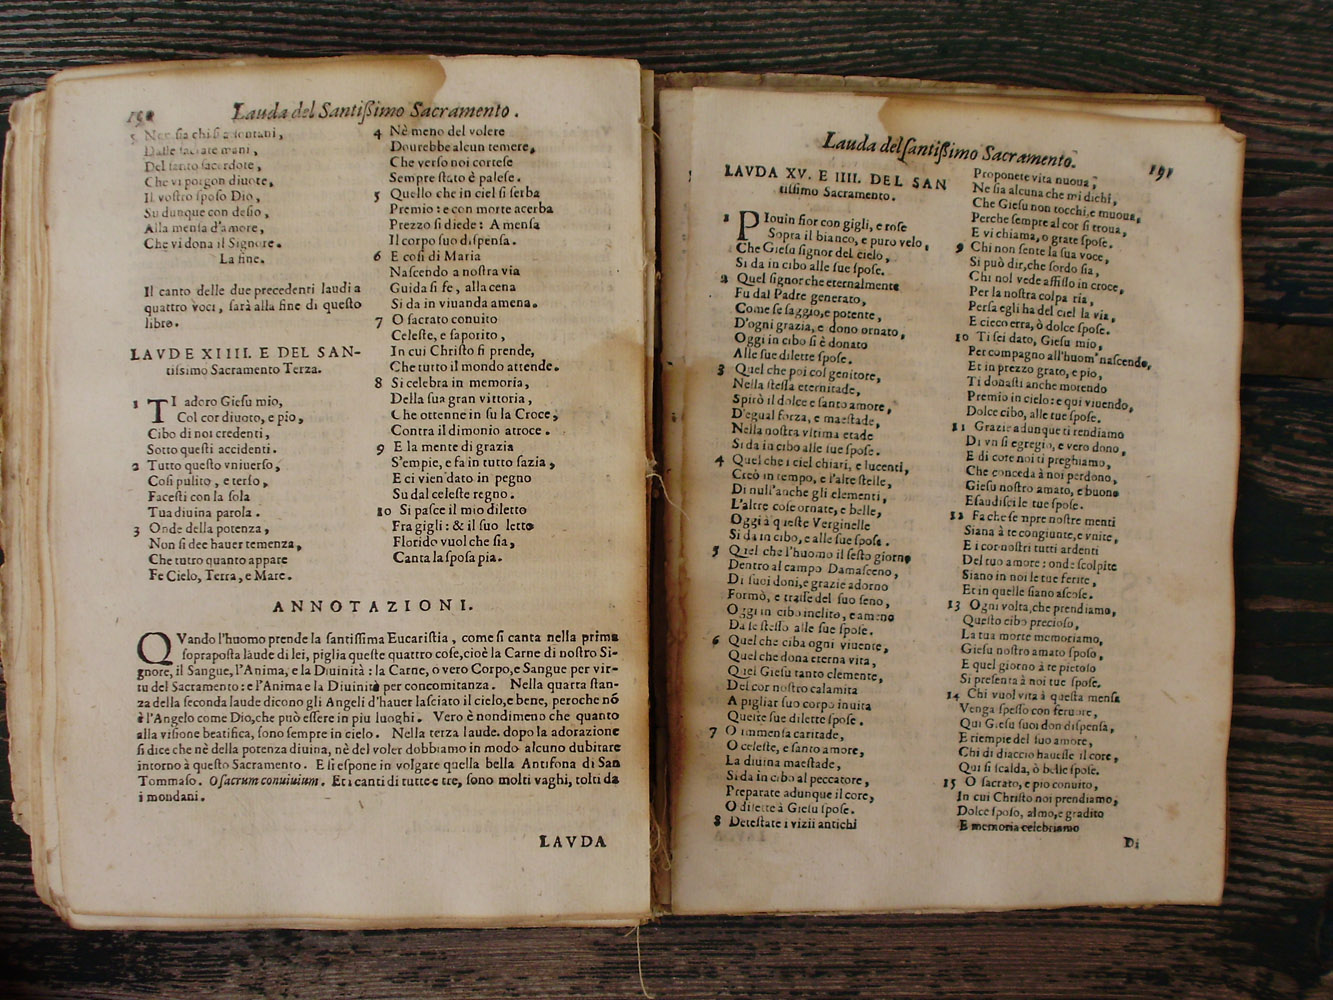 Lauda del Santißimo Sacramento.
5 Non
Del
Che vi porgon diuote,
Il vostro sposo Dio,
Su dunque con desio,
Alla mensa d'amore,
Che vi dona il Signore.
La fine.
Il canto delle due precedenti laudi a
quattro voci, sarà alla fine di questo
libro.
LAVDE XIIII. E DEL SAN-
tissimo Sacramento Terza.
1 TI adoro Giesu mio,
Col cor diuoto, e pio,
Cibo di noi credenti,
Sotto questi accidenti.
2 Tutto questo vniuerso,
Cosi pulito, e terso,
Facesti con la sola
Tua diuina parola.
3 Onde della potenza,
Non si dee hauer temenza,
Che tutto quanto appare
Fe Cielo, Terra, e Mare.
4 Nè meno del volere
Dourebbe alcun temere,
Che verso noi cortese
Sempre stato è palese.
5 Quello che in ciel si serba
Premio: e con morte acerba
Prezzo si diede: A mensa
Il corpo suo dispensa.
6 E cosi di Maria
Nascendo a nostra via
Guida si fe, alla cena
Si da in viuanda amena.
7 O sacrato conuito
Celeste, e saporito,
In cui Christo si prende,
Che tutto il mondo attende.
8 Si celebra in memoria,
Della sua gran vittoria,
Che ottenne in su la Croce,
Contra il dimonio atroce.
9 E la mente di grazia
S'empie, e fa in tutto sazia,
E ci vien dato in pegno
Su dal celeste regno.
10 Si pasce il mio diletto
Fra gigli: & il suo letto
Florido vuol che sia,
Canta la sposa pia.
ANNOTAZIONI.
QVando l'huomo prende la santissima Eucaristia, come si canta nella prima
sopraposta laude di lei, piglia queste quattro cose, cioè la Carne di nostro Si-
gnore, il Sangue, l'Anima, e la Diuinità: la Carne, o vero Corpo, e Sangue per vir-
tu del Sacramento: e l'Anima e la Diuinità per concomitanza. Nella quarta stan-
za della seconda laude dicono gli Angeli d'hauer lasciato il cielo, e bene, peroche nõ
è l'Angelo come Dio, che può essere in piu luoghi. Vero è nondimeno che quanto
alla visione beatifica, sono sempre in cielo. Nella terza laude. dopo la adorazione
si dice che nè della potenza diuina, nè del voler dobbiamo in modo alcuno dubitare
intorno à questo Sacramento. E si espone in volgare quella bella Antifona di San
Tommaso. O sacrum conuiuium. Et i canti di tutt'e tre, sono molti vaghi, tolti da
i mondani.
LAVDA
Lauda del santißimo Sacramento. 191
LAVDA XV. E IIII. DEL SAN
tissimo Sacramento.
1 PIouin fior con gigli, e rose
Sopra il bianco, e puro velo,
Che Giesu signor del cielo,
Si da in cibo alle sue spose.
2 Quel signor che eternalmente
Fu dal Padre generato,
Come se saggio, e potente,
D'ogni grazia, e dono ornato,
Oggi in cibo si è donato
Alle sue dilette spose.
3 Quel che poi col genitore,
Nella stessa eternitade,
Spirò il dolce e santo amore,
D'egual forza, e maestade,
Nella nostra vltima etade
Si da in cibo alle sue spose.
4 Quel che i ciel chiari, e lucenti,
Creò in tempo, e l'altre stelle,
Di null'anche gli elementi,
L'altre cose ornate, e belle,
Oggi à queste Verginelle
Si da in cibo, e alle sue spose.
5 Quel che l'huomo il sesto giorno
Dentro al campo Damasceno,
Di suoi doni, e grazie adorno
Formò, e trasse del suo seno,
Oggi in cibo inclito, e ameno
Da se stesso alle sue spose.
6 Quel che ciba ogni viuente,
Quel che dona eterna vita,
Quel Giesu tanto clemente,
Del cor nostro calamita
A pigliar suo corpo inuita
Queste sue dilette spose.
7 O immensa caritade,
O celeste, e santo amore,
La diuina maestade,
Si da in cibo al peccatore,
Preparate adunque il core,
O dilette à Giesu spose.
8 Detestate i vizii antichi
Proponete vita nuoua,
Ne sia alcuna che mi dichi,
Che Giesu non tocchi, e muoua,
Perche sempre al cor si troua,
E vi chiama, o grate spose.
9 Chi non sente la sua voce,
Si può dir, che sordo sia,
Chi nol vede affisso in croce,
Per la nostra colpa ria,
Persa egli ha del ciel la via,
E cieco erra, ò dolce spose.
10 Ti sei dato, Giesu mio,
Per compagno all'huom' nascendo,
Et in prezzo grato, e pio,
Ti donasti anche morendo
Premio in cielo: e qui viuendo,
Dolce cibo, alle tue spose.
11 Grazie adunque ti rendiamo
Di vn si egregio, e vero dono,
E di core noi ti preghiamo,
Che conceda à noi perdono,
Giesu nostro amato, e buono
Esaudisci le tue spose.
12 Fa che sempre nostre menti
Siano à te congiunte, e vnite,
E i cor nostri tutti ardenti
Del tuo amore: onde scolpite
Siano in noi le tue ferite,
Et in quelle siano ascose.
13 Ogni volta, che prendiamo,
Questo cibo precioso,
La tua morte memoriamo,
Giesu nostro amato sposo,
E quel giorno à te pietoso
Si presenta à noi tue spose.
14 Chi vuol vita à questa mensa
Venga spesso con feruore,
Qui Giesu suoi don dispensa,
E riempie del suo amore,
Chi di diaccio hauesse il core,
Qui si scalda, ò belle spose.
15 O sacrato, e pio conuito,
In cui Christo noi prendiamo,
Dolce sposo, almo, e gradito
E memoria celebriamo
Di